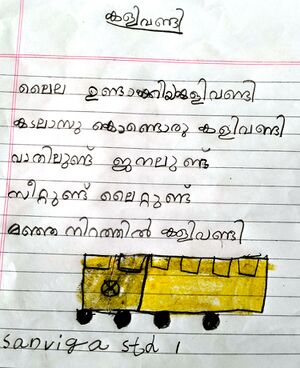 കളിവണ്ടി
ലൈല ഉണ്ടാക്കിയകളിവണ്ടി
കടലാസു കൊണ്ടൊരു കളിവണ്ടി
വാതിലുണ്ട് ജനലുണ്ട്
സീറ്റുണ്ട് ലൈറ്റുണ്ട്
മഞ്ഞ നിറത്തിൽ കളിവണ്ടി
sanviga std 1